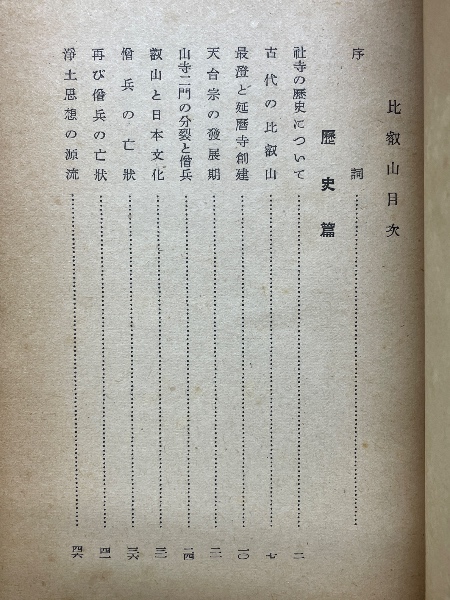 比叡山目次
序詞
歷史篇
社寺の歷史について 二
古代の比叡山 七
最澄と延曆寺創建 一〇
天台宗の發展期 二一
山寺二門の分裂と僧兵 二四
叡山と日本文化 三一
僧兵の亡狀 三六
再び僧兵の亡狀 四一
淨土思想の源流 四六